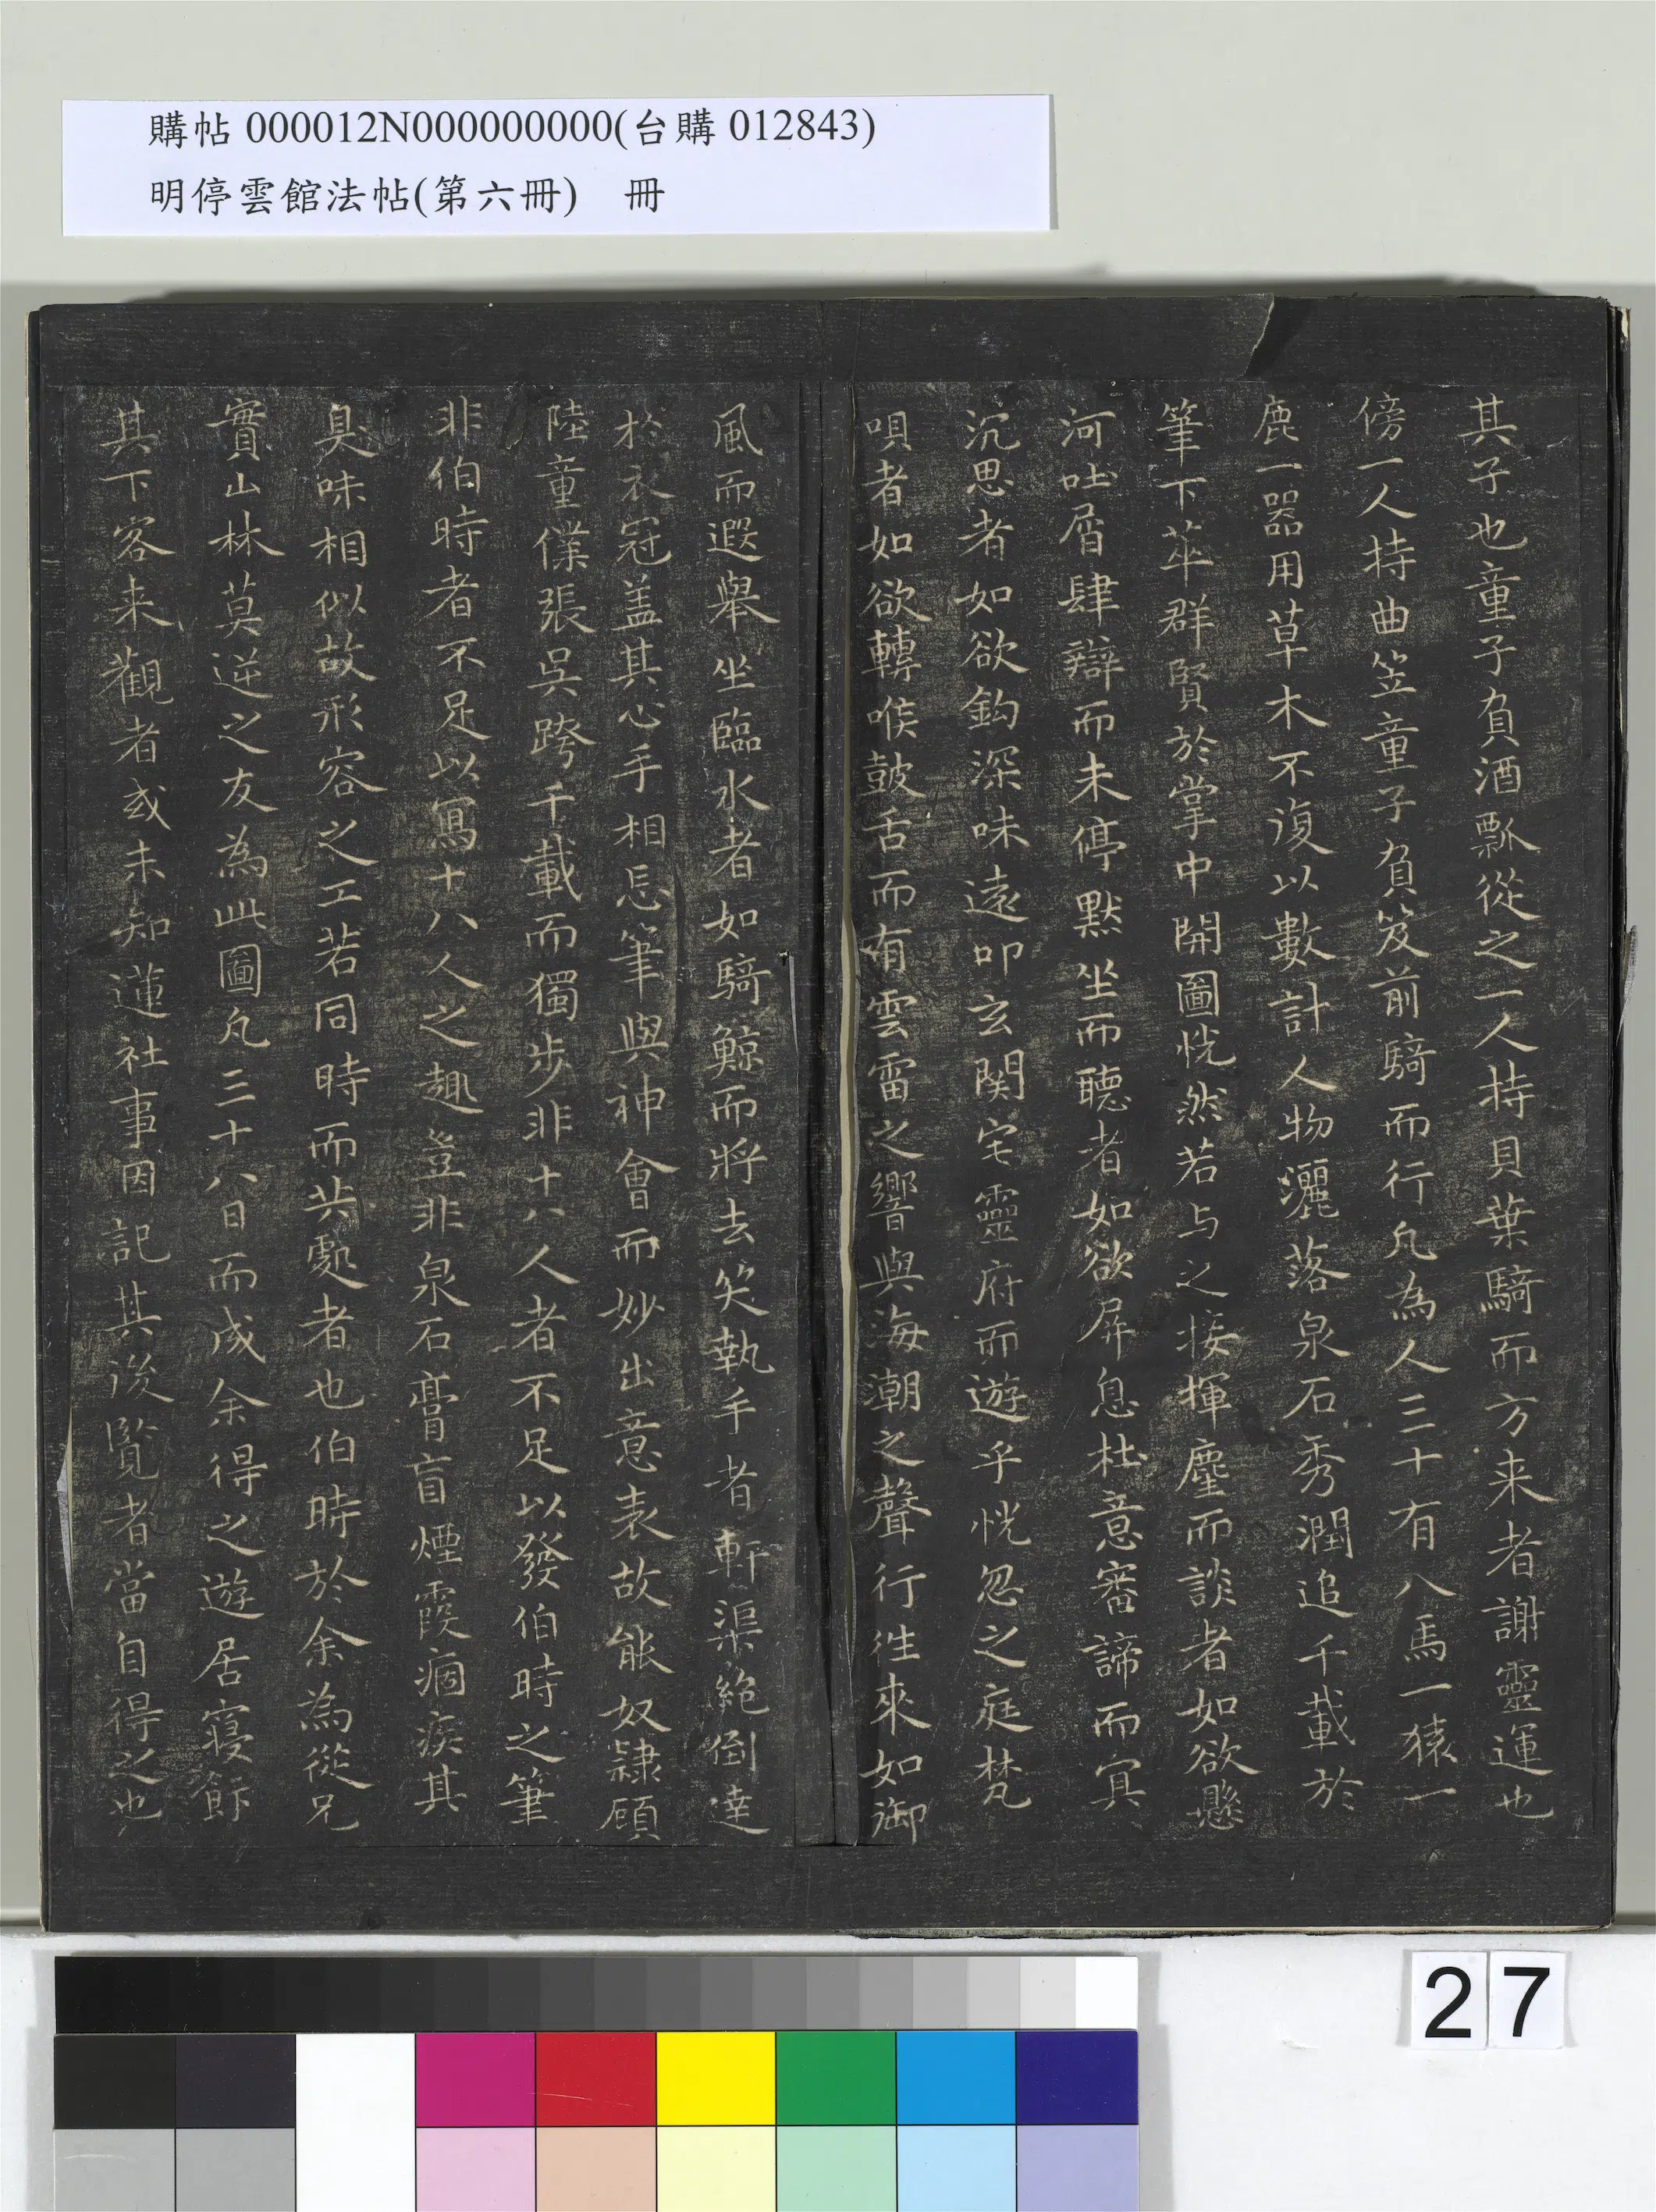 購帖 000012N000000000(台購 012843)
明停雲館法帖(第六冊) 冊
其子也童子負酒瓢從之一人持貝葉騎而方来者謝靈運也
傍一人持曲笠童子負笈前騎而行凡為人三十有八馬一猿一
鹿一器用草木不復以數計人物灑落泉石秀潤追千載於
筆下萃群賢於掌中開圖恍然若与之接揮麈而談者如欲懸
河吐屑肆辯而未停默坐而聽者如欲屏息杜意審諦而冥
沉思者如欲鈎深味遠叩玄関宅靈府而遊乎恍忽之庭梵
唄者如欲轉喉鼓舌而有雲雷之響與海潮之聲行往來如御
風而遐舉坐臨水者如騎鯨而將去笑執手者軒渠絶倒達
於衣冠盖其心手相忘筆與神會而妙出意表故能奴隸顧
陸童僕張吳跨千載而獨步非十八人者不足以發伯時之筆
非伯時者不足以寫十八人之趣豈非泉石膏肓煙霞痼疾其
臭味相似故形容之工若同時而共處者也伯時於余為從兄
實山林莫逆之友為此圖凡三十八日而成余得之遊居寢飰
其下客来觀者或未知蓮社事因記其後覽者當自得之也
27